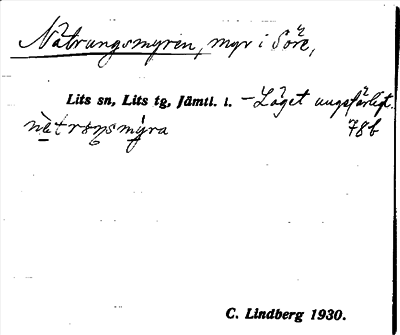 Nätrungsmyren, myr i Söre,
Lits sn, Lits tg, Jämtl. l. — Läget ungefärligt.
78b
C. Lindberg 1930.